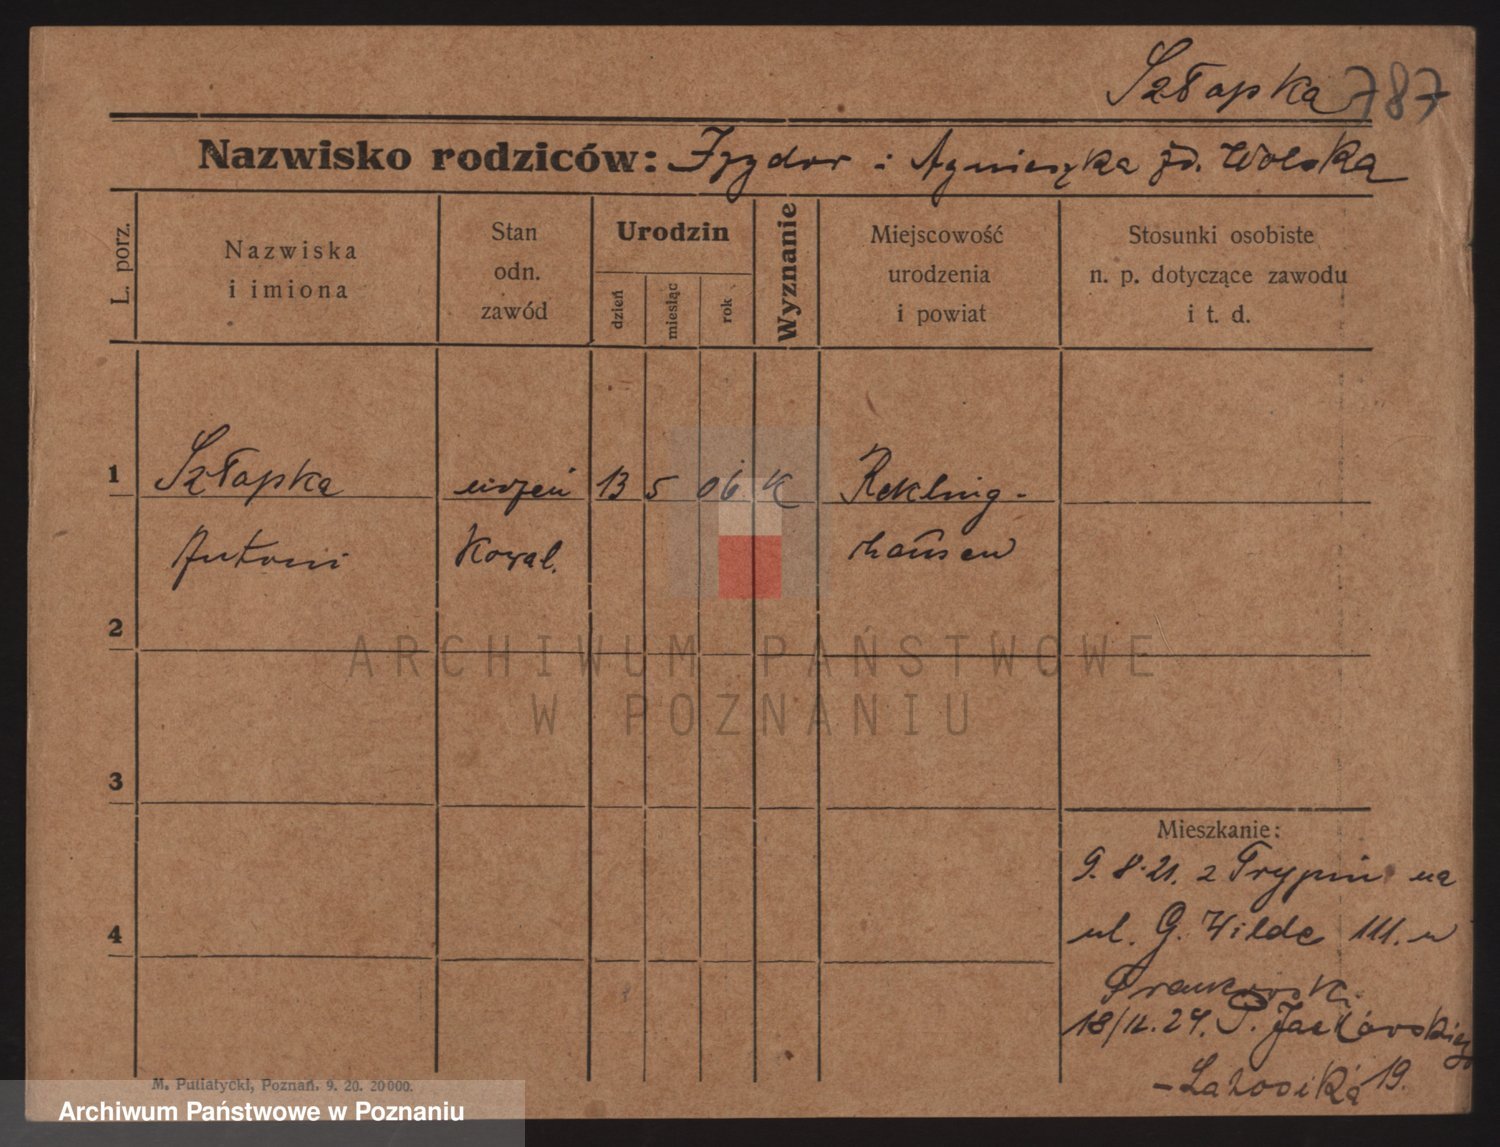 Szłapka 787
Nazwisko rodziców: Izydor i Agnieszka zd. Wolska
L. porz.
Nazwiska
i imiona
Stan
odn.
zawód
Urodzin
dzień
miesiąc
rok
Wyznanie
Miejscowość
urodzenia
i powiat
Stosunki osobiste
n. p. dotyczące zawodu
i t. d.
1 Szłapka uczeń 13 5 06 K Rekling-
Antoni Kowal. hausen
2
3
Mieszkanie:
9.8.21. z na
4
ul. G. Wilde 111. u
18/11.24. P.
19.
M. Putiatycki, Poznań. 9. 20. 20000.
ARCHIWUM PAŃSTWOWE
W POZNANIU
Archiwum Państwowe w Poznaniu